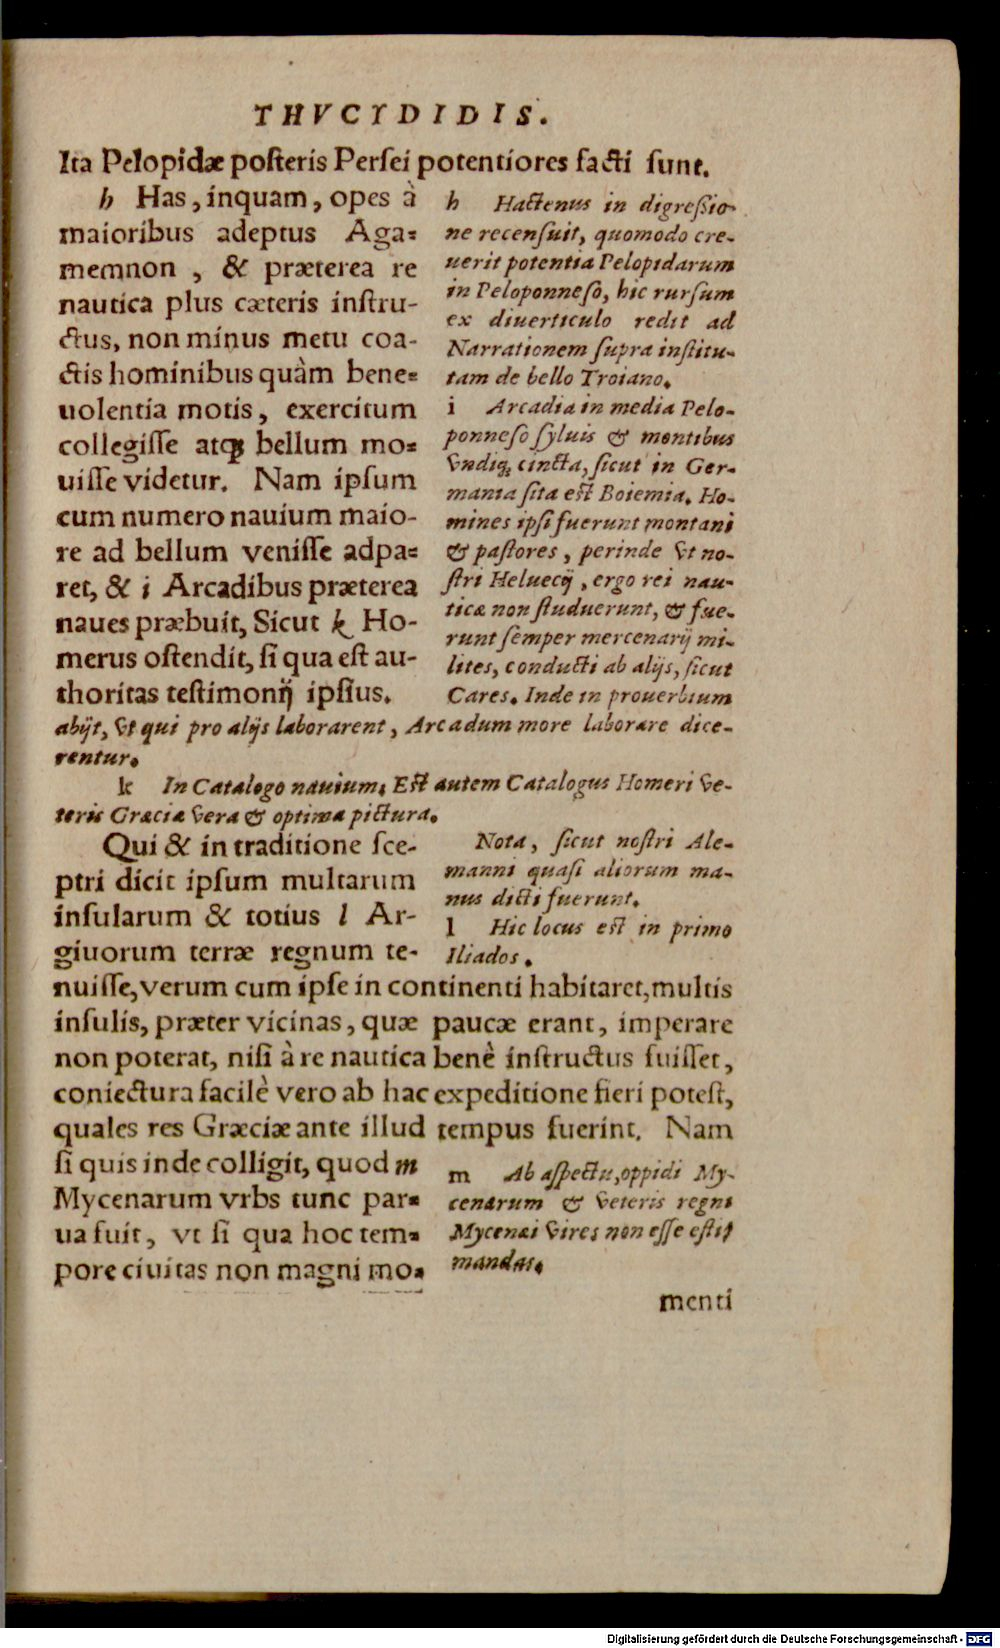 THVCYDIDIS.
Ita Pelopidæ poſteris Perſei potentiores facti ſunt.
h Has, inquam, opes à
maioribus adeptus Aga=
memnon , & præterea re
nautica plus cæteris inſtru-
ctus, non minus metu coa-
ctis hominibus quàm bene=
uolentia motis, exercitum
collegiſſe atq́; bellum mo=
uiſſe videtur. Nam ipſum
cum numero nauium maio-
re ad bellum veniſſe adpa=
ret, & i Arcadibus præterea
naues præbuit, Sicut k Ho-
merus oſtendit, ſi qua eſt au-
thoritas teſtimonij ipſius.
h Hactenus in digreſsio-
ne recenſuit, quomodo cre-
uerit potentia Pelopidarum
in Peloponneſo, hic rurſum
ex diuerticulo redit ad
Narrationem ſupra inſtitu-
tam de bello Troiano.
i Arcadia in media Pelo-
ponneſo ſyluis & montibus
vndiq; cincta, ſicut in Ger-
mania ſita eſt Boiemia. Ho-
mines ipſi fuerunt montani
& paſtores, perinde vt no-
ſtri Heluecij, ergo rei nau-
ticæ non ſtuduerunt, & fue-
runt ſemper mercenarij mi-
lites, conducti ab alijs, ſicut
Cares. Inde in prouerbium
abijt, vt qui pro alijs laborarent, Arcadum more laborare dice-
rentur.
k In Catalogo nauium. Eſt autem Catalogus Homeri ve-
teris Græciæ vera & optima pictura.
Qui & in traditione ſce-
ptri dicit ipſum multarum
inſularum & totius l Ar-
giuorum terræ regnum te-
Nota, ſicut noſtri Ale-
manni quaſi aliorum ma-
nus dicti fuerunt.
l Hic locus eſt in primo
Iliados.
nuiſſe, verum cum ipſe in continenti habitaret, multis
inſulis, præter vicinas, quæ paucæ erant, imperare
non poterat, niſi à re nautica benè inſtructus fuiſſet,
coniectura facilè vero ab hac expeditione fieri poteſt,
quales res Græciæ ante illud tempus fuerint. Nam
ſi quis inde colligit, quod m
Mycenarum vrbs tunc par=
ua fuit, vt ſi qua hoc tem=
pore ciuitas non magni mo=
m Ab aſpectu, oppidi My-
cenarum & veteris regni
Mycenæi vires non eſſe eſti=
mandas.
menti
Digitalisierung gefördert durch die Deutsche Forschungsgemeinschaft - DFG